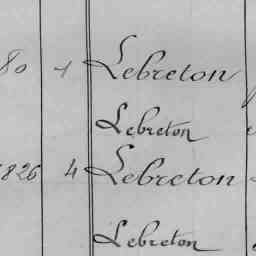 80 4 Lebreton
Lebreton
826 4 Lebreton
Lebreton